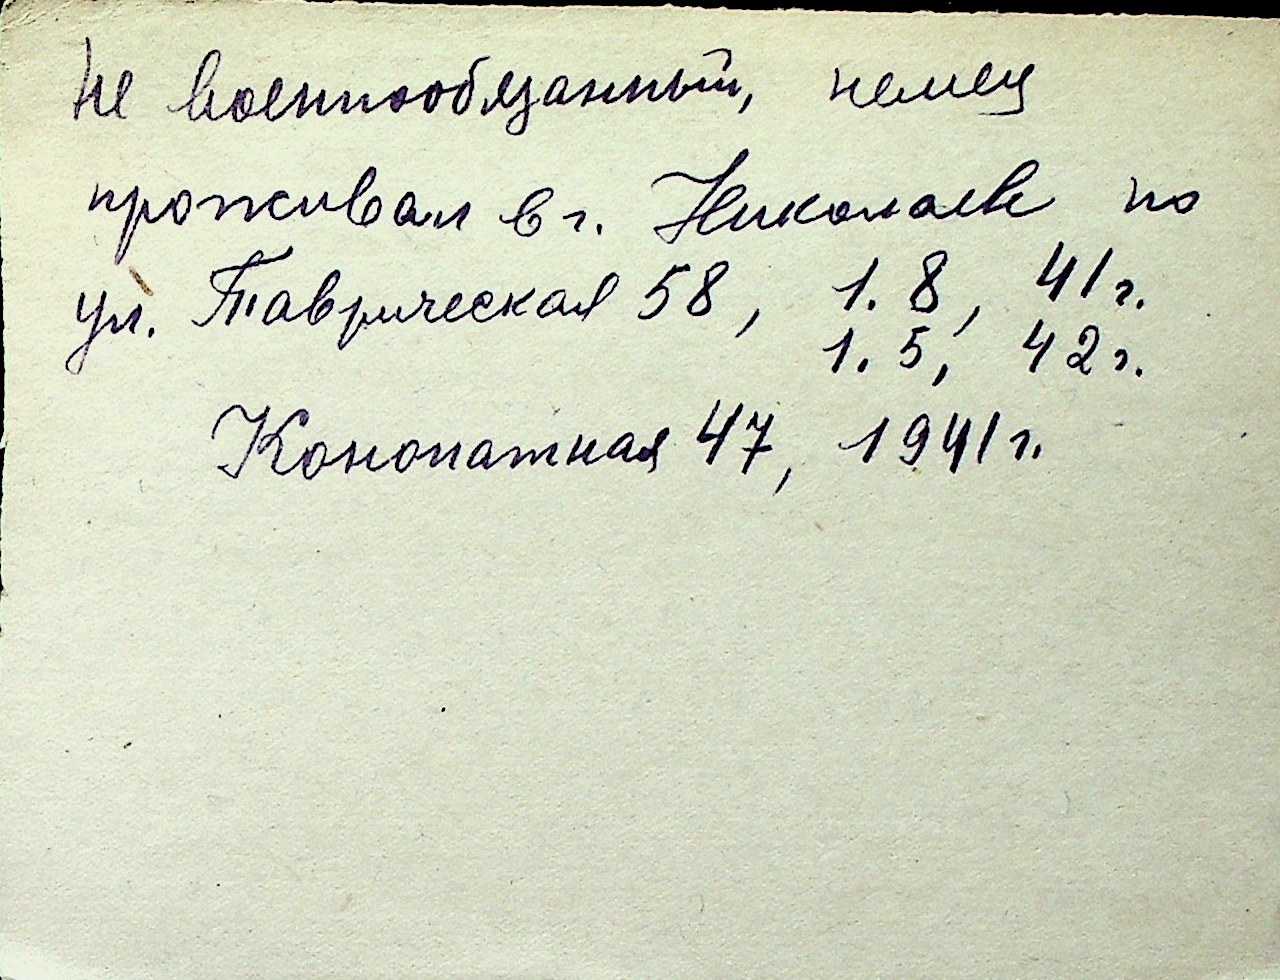 не военнообязанный, немец
проживал в г. Николаев по
ул. Таврическая 58, 1. 8, 41 г.
1. 5, 42 г.
Конопатная 47, 1941 г.